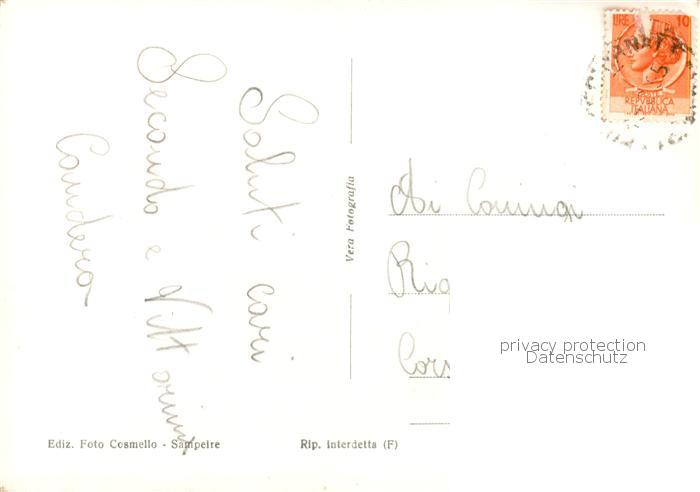 Saluti cari
Secondo e Vittorina
Candera
Vera Fotografia
LIRE 10
POSTE
REPVBBLICA
ITALIANA
Ai Coniugi
Rig
Cors
privacy protection
Datenschutz
Ediz. Foto Cosmello - Sampeire
Rip. interdetta (F)